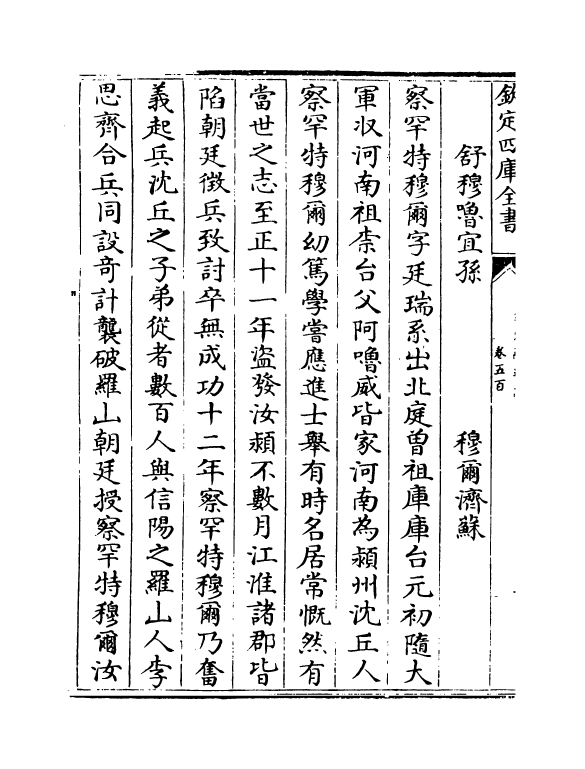 欽定四庫全書
卷五百
舒穆嚕宜孫 穆爾濟蘇
察罕特穆爾字廷瑞系出北庭曾祖庫庫台元初隨大
軍收河南祖柰台父阿嚕威皆家河南為潁州沈丘人
察罕特穆爾幼篤學嘗應進士舉有時名居常慨然有
當世之志至正十一年盜發汝潁不數月江淮諸郡皆
陷朝廷徴兵致討卒無成功十二年察罕特穆爾乃奮
義起兵沈丘之子弟從者數百人與信陽之羅山人李
思齊合兵同設竒計襲破羅山朝廷授察罕特穆爾汝